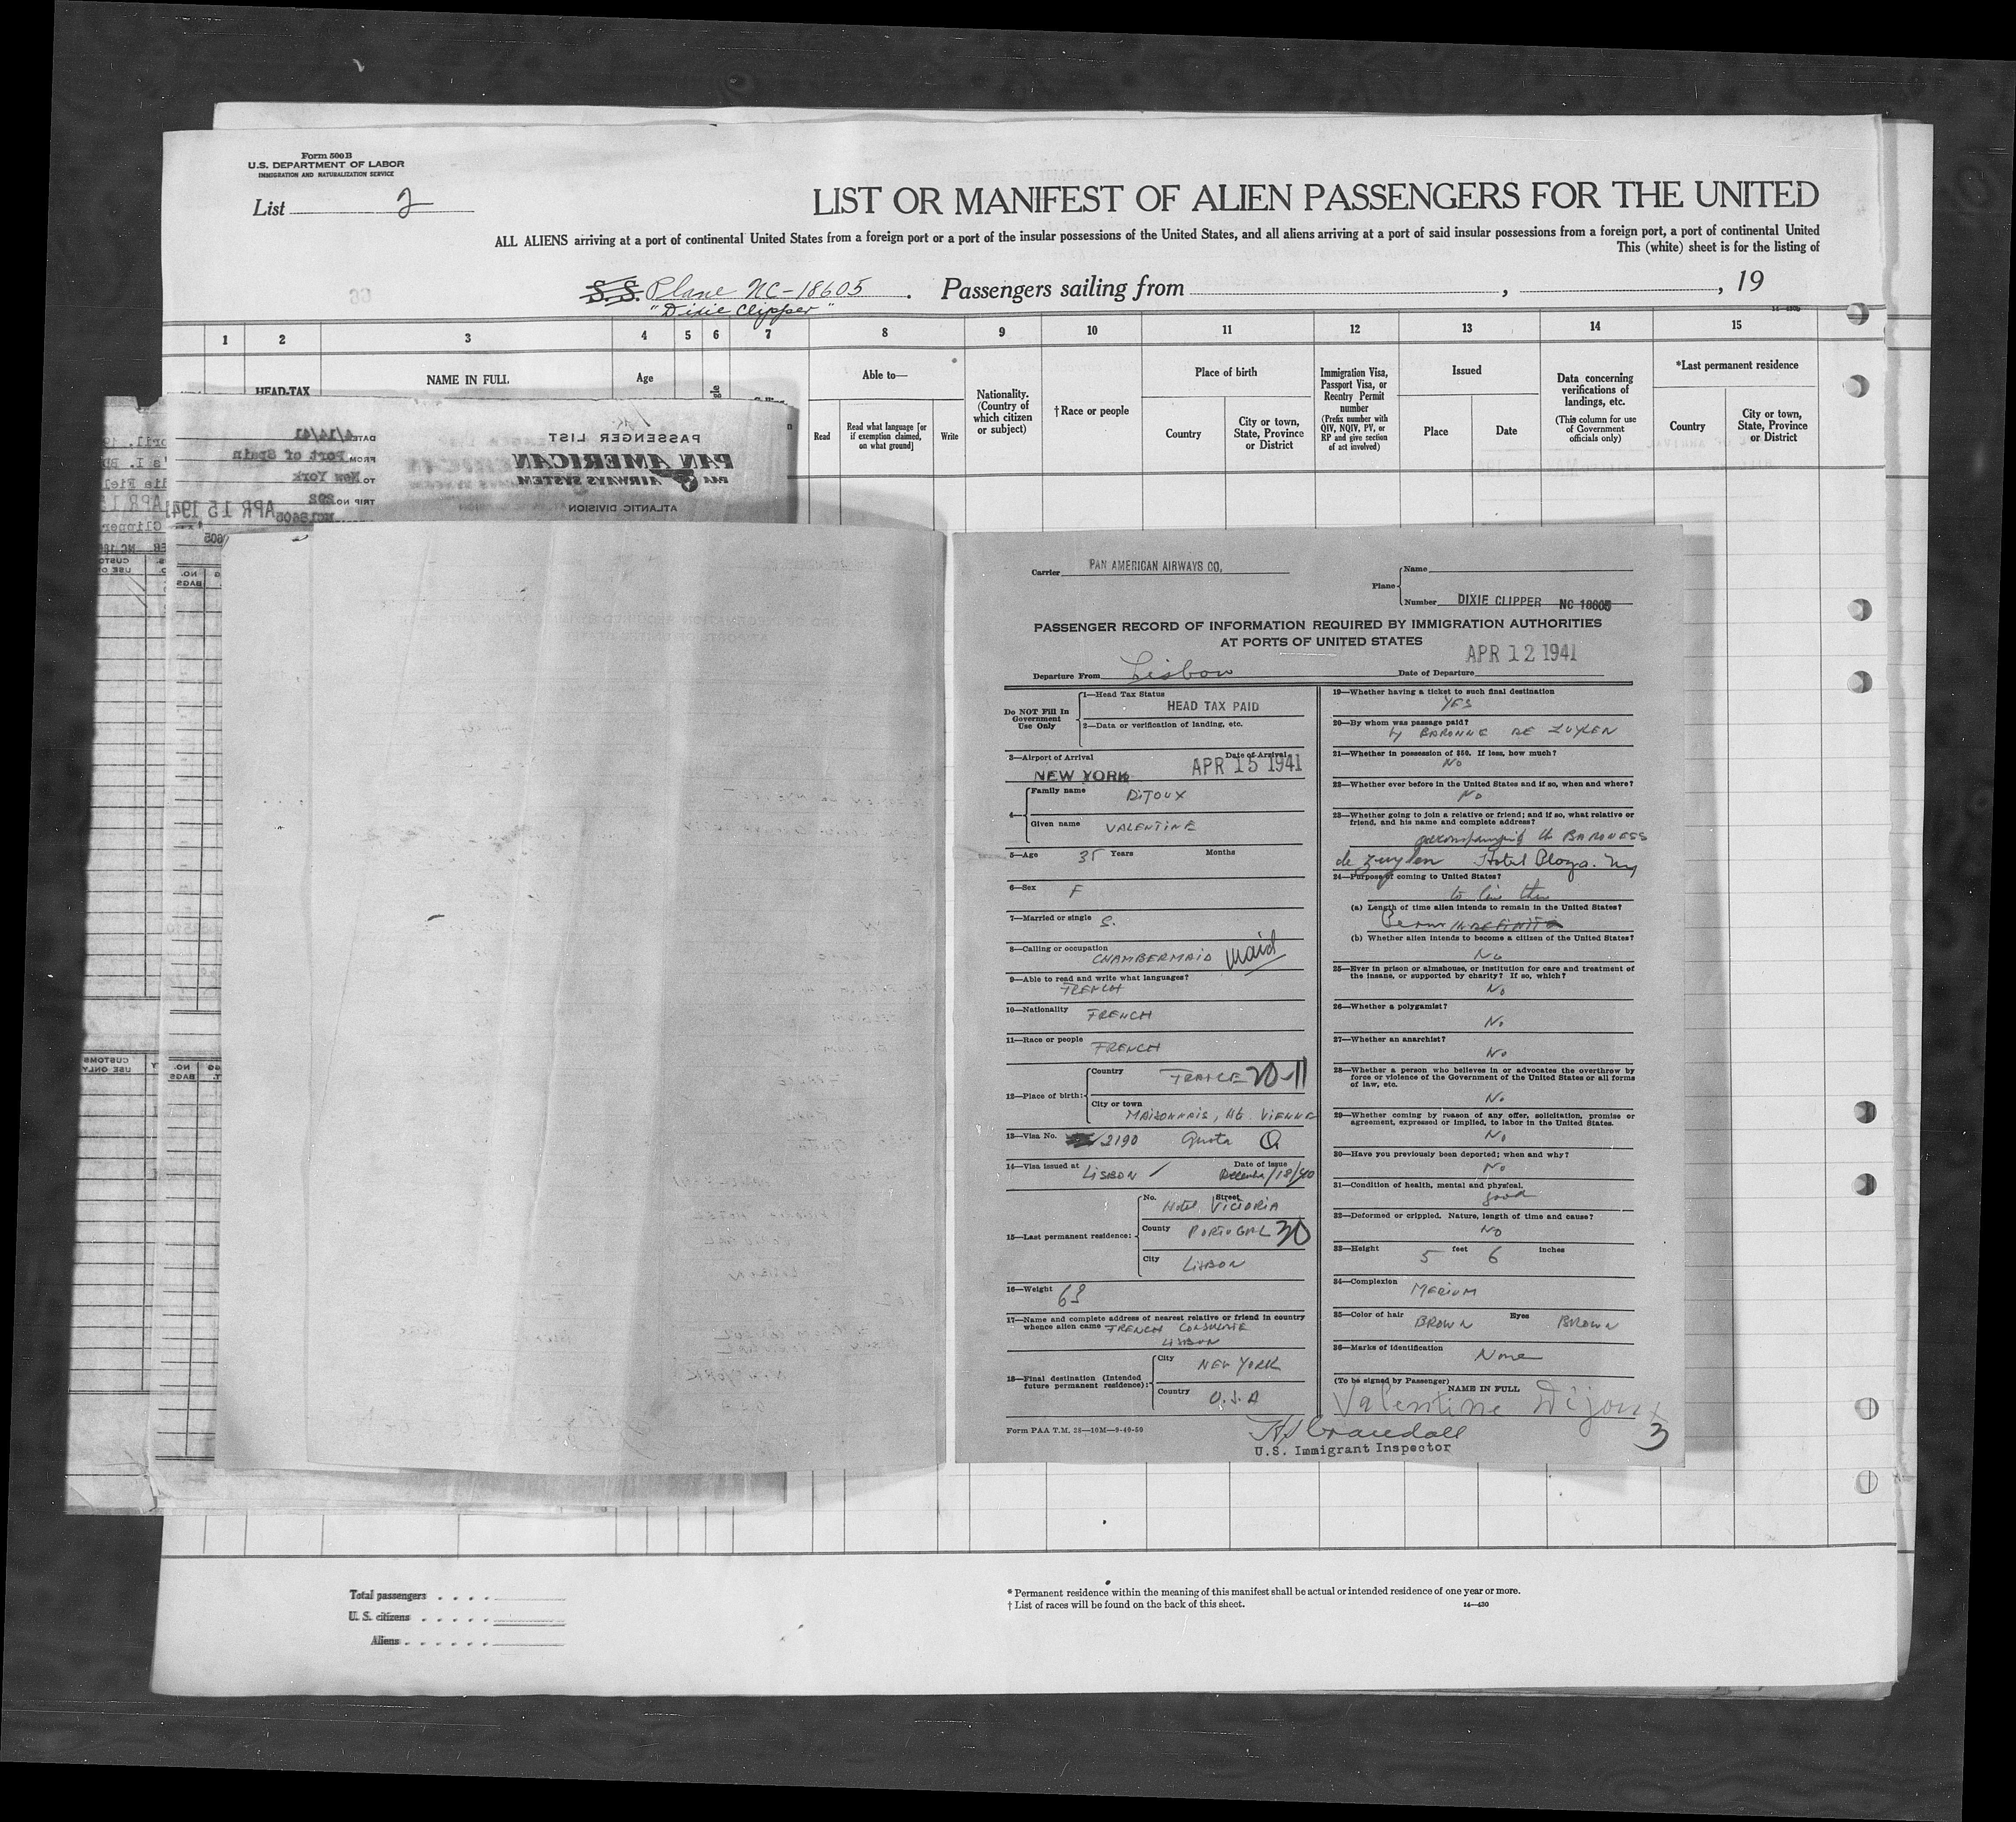 Form 500B
U.S. DEPARTMENT OF LABOR
IMMIGRATION AND NATURALIZATION SERVICE
List 2
LIST OR MANIFEST OF ALIEN PASSENGERS FOR THE UNITED
ALL ALIENS arriving at a port of continental United States from a foreign port or a port of the insular possessions of the United States, and all aliens arriving at a port of said insular possessions from a foreign port, a port of continental United
This (white) sheet is for the listing of
S.S. Plane NC-18605. Passengers sailing from , , 19
"Dixie Clipper"
1 2 3 4 5 6 7 8 9 10 11 12 13 14 15
HEAD-TAX
NAME IN FULL
Age
Able to—
Read
Read what language [or if exemption claimed, on what ground]
Write
Nationality. (Country of which citizen or subject)
†Race or people
Place of birth
Country
City or town, State, Province or District
Immigration Visa, Passport Visa, or Reentry Permit number
(Prefix number with QIV, NQIV, PV, or RP and give section of act involved)
Issued
Place
Date
Data concerning verifications of landings, etc.
(This column for use of Government officials only)
*Last permanent residence
Country
City or town, State, Province or District
PASSENGER LIST
PAN AMERICAN
PAA AIRWAYS SYSTEM
ATLANTIC DIVISION
DATE 4/14/41
FROM Port of Spain
TO New York
TRIP NO. 292
NC18605
APR 15 1941
Carrier PAN AMERICAN AIRWAYS CO,
Plane
Name
Number DIXIE CLIPPER NC 18605
PASSENGER RECORD OF INFORMATION REQUIRED BY IMMIGRATION AUTHORITIES
AT PORTS OF UNITED STATES
APR 12 1941
Departure From Lisbon Date of Departure
Do NOT Fill In Government Use Only
1—Head Tax Status
HEAD TAX PAID
2—Data or verification of landing, etc.
3—Airport of Arrival Date of Arrival
NEW YORK APR 15 1941
4—
Family name DIJOUX
Given name VALENTINE
5—Age 35 Years Months
6—Sex F
7—Married or single S.
8—Calling or occupation
CHAMBERMAID maid
9—Able to read and write what languages?
FRENCH
10—Nationality FRENCH
11—Race or people FRENCH
12—Place of birth:
Country FRANCE 20-11
City or town
MAISONNAIS, HE. VIENNE
13—Visa No. 2190 Quota Q
14—Visa issued at LISBON Date of Issue December/18/40
15—Last permanent residence:
No. Street
Hotel VICTORIA
County PORTUGAL 30
City LISBON
16—Weight
17—Name and complete address of nearest relative or friend in country
whence alien came FRENCH CONSULATE
LISBON
18—Final destination (Intended future permanent residence):
City NEW YORK
Country U.S.A
Form PAA T.M. 28—10M—9-40-50
19—Whether having a ticket to such final destination
YES
20—By whom was passage paid?
BARONNE DE ZUYLEN
21—Whether in possession of $50. If less, how much?
No
22—Whether ever before in the United States and if so, when and where?
No
23—Whether going to join a relative or friend; and if so, what relative or
friend, and his name and complete address?
accompanying the BARONESS
de Zuylen Hotel Plaza. Ny
24—Purpose of coming to United States?
to live there
(a) Length of time alien intends to remain in the United States?
Perm INDEFINITE
(b) Whether alien intends to become a citizen of the United States?
No
25—Ever in prison or almshouse, or institution for care and treatment of
the insane, or supported by charity? If so, which?
No
26—Whether a polygamist?
No
27—Whether an anarchist?
No
28—Whether a person who believes in or advocates the overthrow by
force or violence of the Government of the United States or all forms
of law, etc.
No
29—Whether coming by reason of any offer, solicitation, promise or
agreement, expressed or implied, to labor in the United States.
No
30—Have you previously been deported; when and why?
No
31—Condition of health, mental and physical.
good
32—Deformed or crippled. Nature, length of time and cause?
NO
33—Height 5 feet 6 inches
34—Complexion
MEDIUM
35—Color of hair BROWN Eyes BROWN
36—Marks of identification None
(To be signed by Passenger)
NAME IN FULL
Valentine Dijoux
3
H S Crandall
U.S. Immigrant Inspector
Total passengers
U. S. citizens
Aliens
* Permanent residence within the meaning of this manifest shall be actual or intended residence of one year or more.
† List of races will be found on the back of this sheet.
14—430